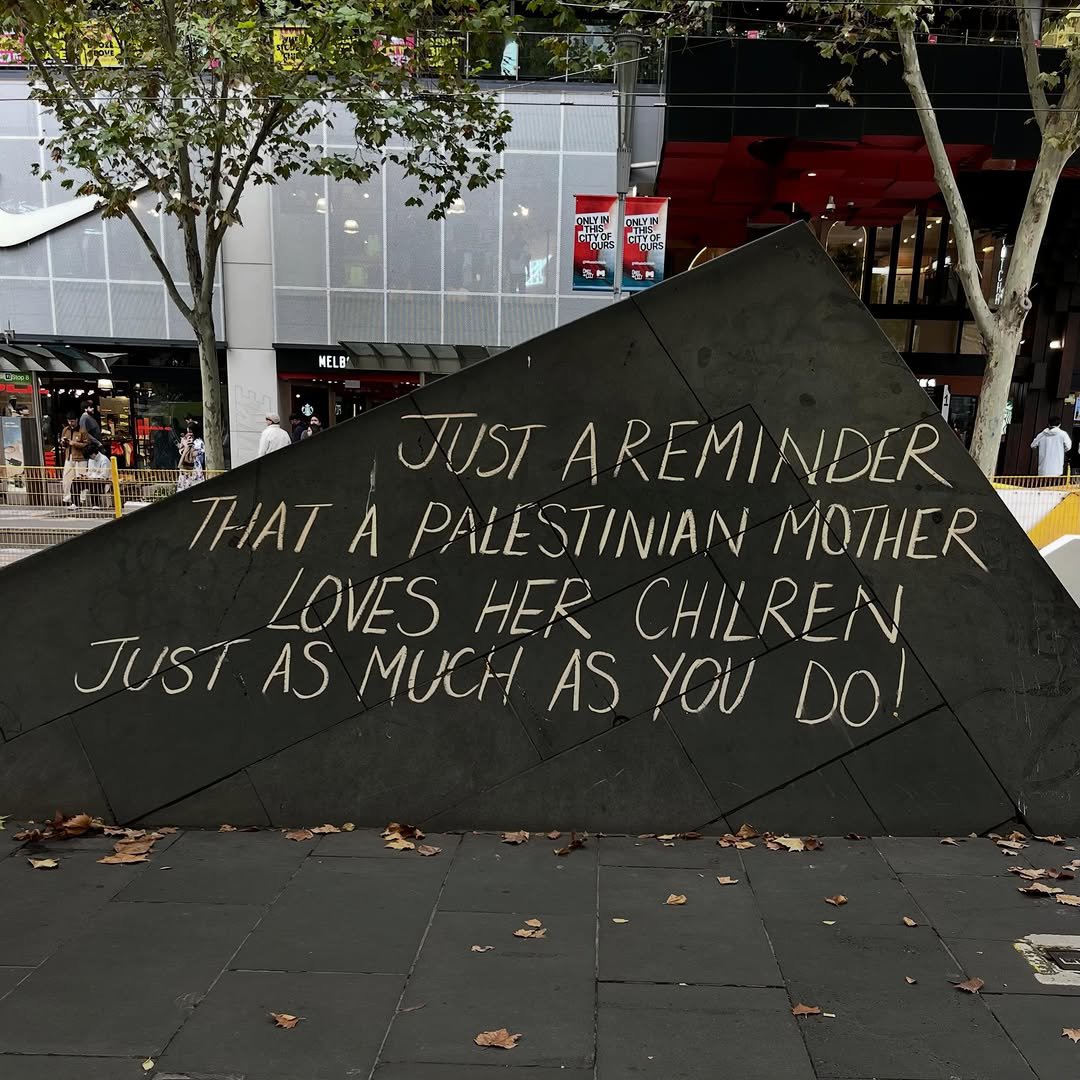 ONLY IN
THIS
CITY OF
OURS
ONLY IN
THIS
CITY OF
OURS
MELB
Stop 8
JUST A REMINDER
THAT A PALESTINIAN MOTHER
LOVES HER CHILREN
JUST AS MUCH AS YOU DO!